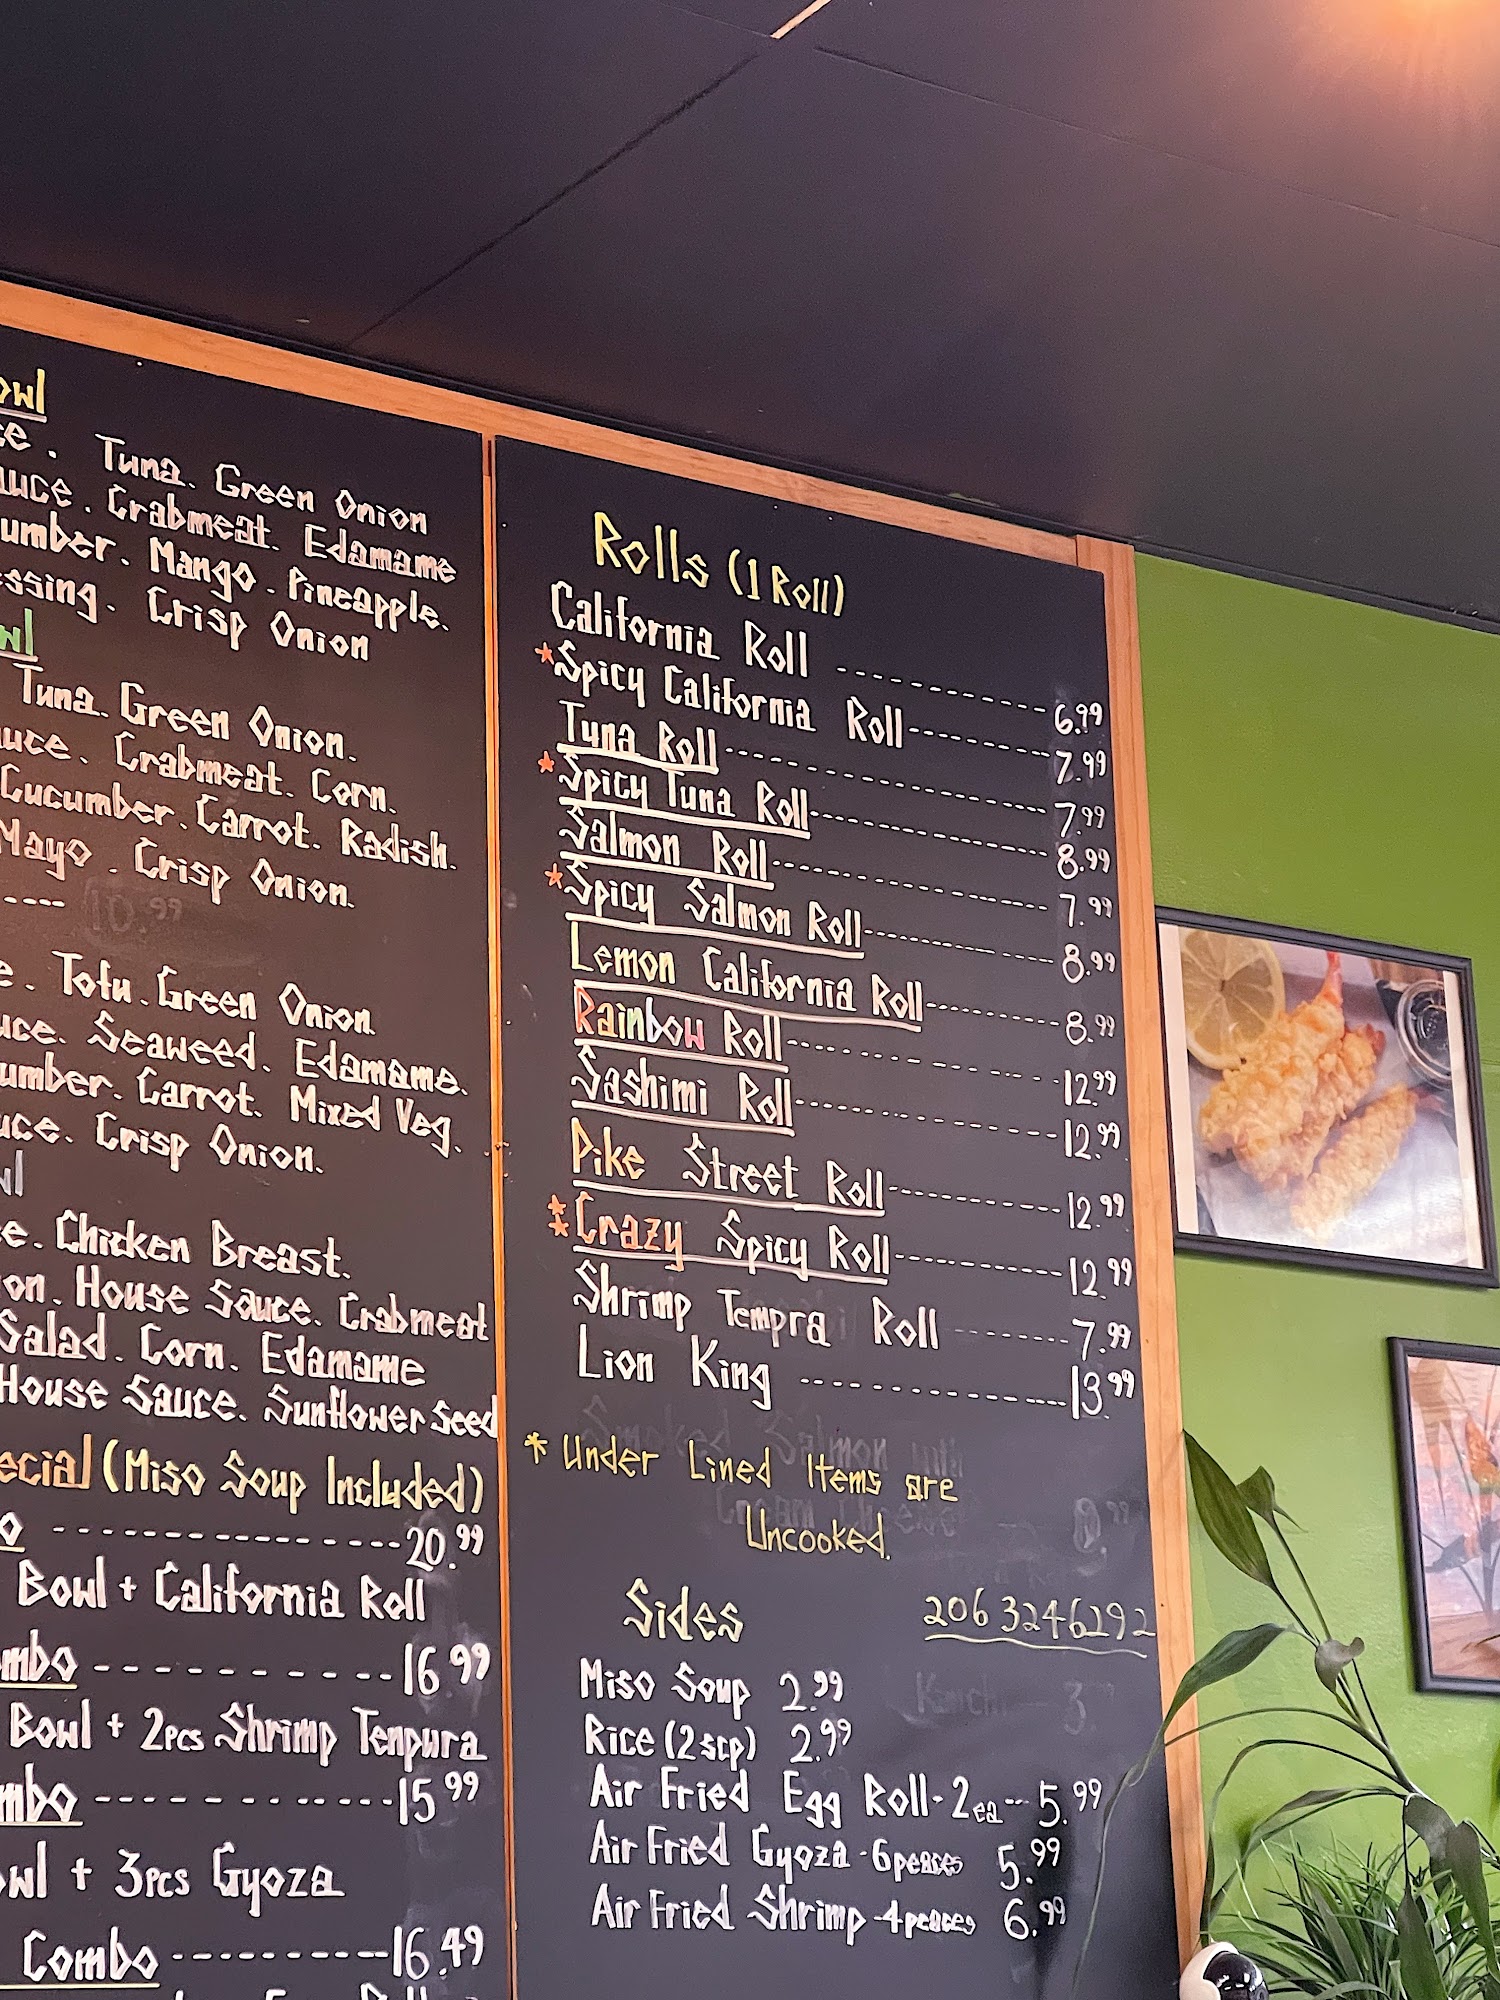 owl
ce. Tuna. Green Onion
auce. Crabmeat. Edamame
umber. Mango. Pineapple.
essing. Crisp Onion
wl
Tuna. Green Onion.
auce. Crabmeat. Corn.
Cucumber. Carrot. Radish.
Mayo. Crisp Onion.
---- 10.99
e. Tofu. Green Onion
uce. Seaweed. Edamame.
umber. Carrot. Mixed Veg.
uce. Crisp Onion.
wl
e. Chicken Breast.
ion. House Sauce. Crabmeat
Salad. Corn. Edamame
House Sauce. Sunflower Seed
ecial (Miso Soup Included)
o -------------- 20.99
Bowl + California Roll
mbo ---------- 16.99
Bowl + 2pcs Shrimp Tenpura
mbo ------------- 15.99
owl + 3pcs Gyoza
Combo ---------- 16.49
Rolls (1 Roll)
California Roll ------------ 6.99
*Spicy California Roll -------- 7.99
Tuna Roll ------------------ 7.99
*Spicy Tuna Roll -------------- 8.99
Salmon Roll ---------------- 7.99
*Spicy Salmon Roll ----------- 8.99
Lemon California Roll -------- 8.99
Rainbow Roll --------------- 12.99
Sashimi Roll --------------- 12.99
Pike Street Roll ----------- 12.99
**Crazy Spicy Roll ----------- 12.99
Shrimp Tempra Roll ------- 7.99
Lion King --------------- 13.99
* Under Lined Items are
Uncooked.
Sides
206 3246292
Miso Soup 2.99
Rice (2scp) 2.99
Air Fried Egg Roll-2ea--- 5.99
Air Fried Gyoza-6peaces 5.99
Air Fried Shrimp-4peaces 6.99